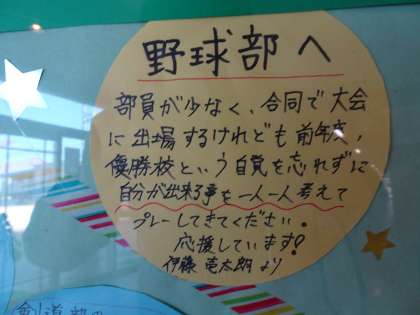 野球部へ
部員が少なく、合同で大会
に出場するけれども前年度、
優勝校という自覚を忘れずに
自分が出来る事を一人一人考えて
プレーしてきてください。
応援しています!
伊藤 壱太朗 より
剣道部の